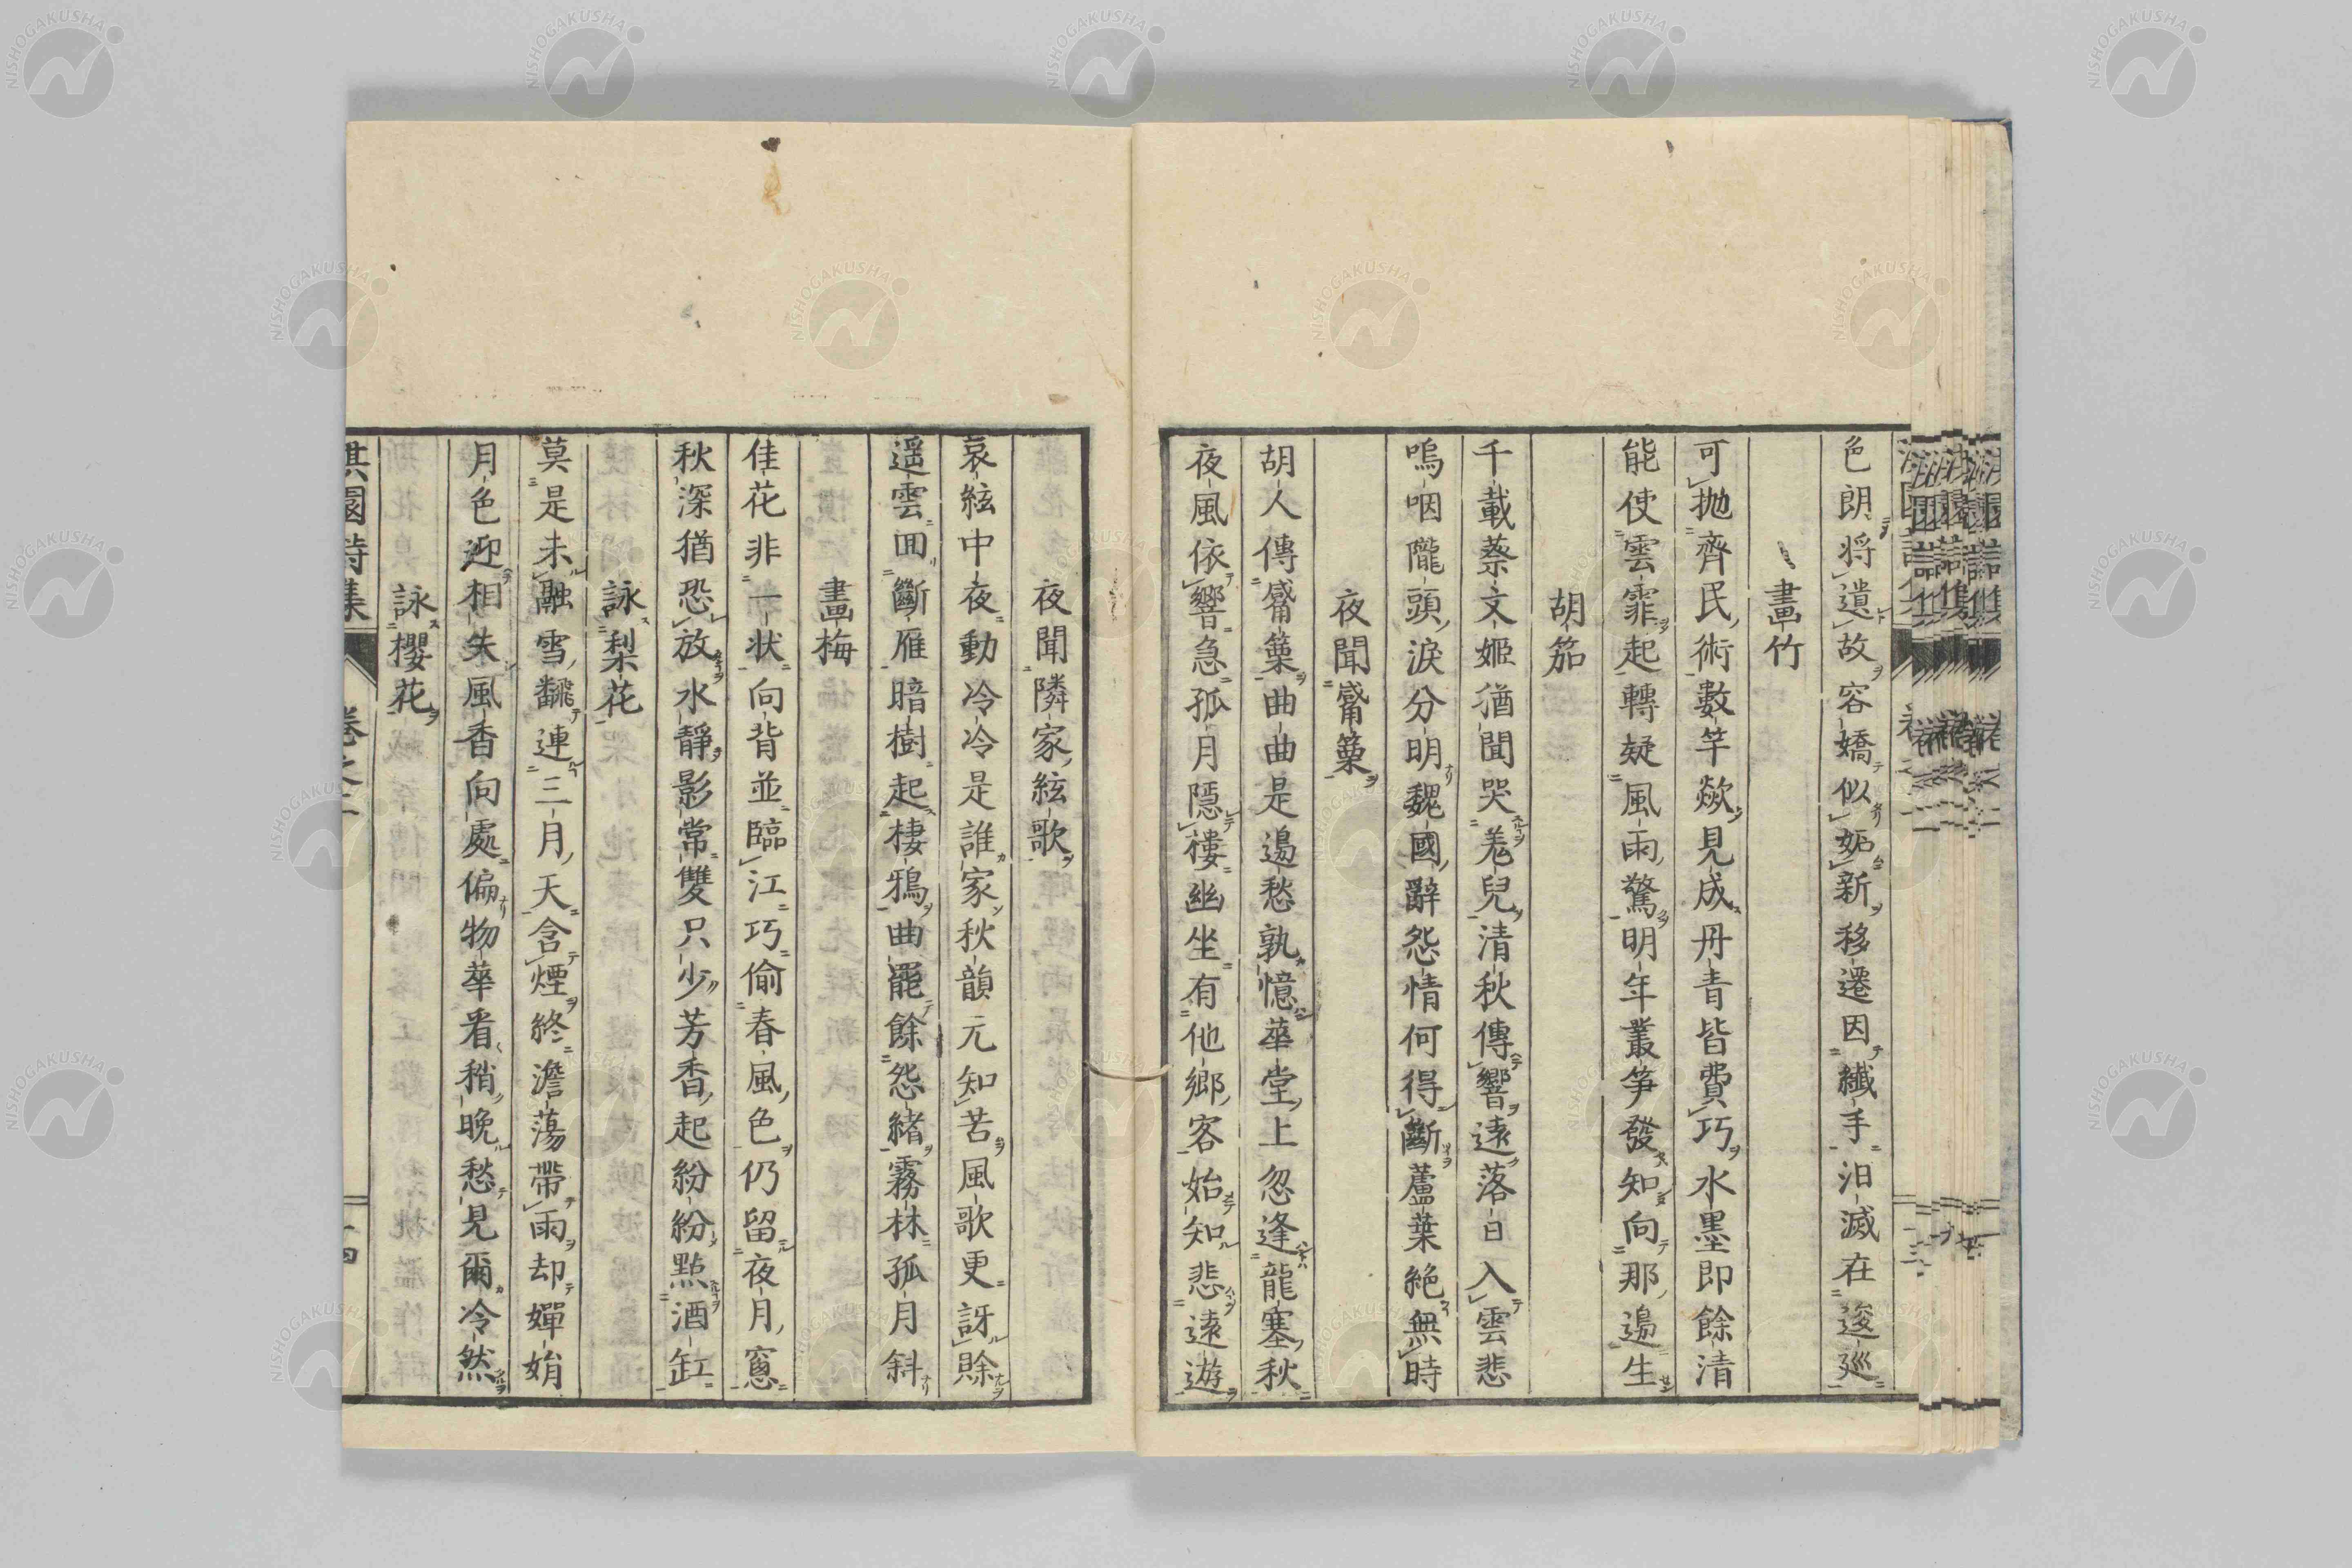 色朗將遺故容嬌似妬新移遷因纖手汨滅在逡廵
畫竹
可抛齊民術數竿歘見成丹青皆費巧水墨即餘清
能使雲霏起轉疑風雨驚明年叢笋發知向那邉生
胡笳
千載蔡文姬猶聞哭羗兒清秋傳響遠落日入雲悲
嗚咽隴頭淚分明魏國辭怨情何得斷蘆葉絶無時
夜聞觱篥
胡人傳觱篥曲曲是邉愁孰憶華堂上忽逢龍塞秋
夜風依響急孤月隱樓幽坐有他鄉客始知悲遠遊
夜聞隣家絃歌
哀絃中夜動冷冷是誰家秋韻元知苦風歌更訝賖
遥雲回斷雁暗樹起棲鴉曲罷餘怨緒霧林孤月斜
畫梅
佳花非一状向背並臨江巧偷春風色仍留夜月窻
秋深猶恐放水靜影常雙只少芳香起紛紛點酒缸
詠梨花
莫是未融雪飜連三月天含煙終澹蕩帶雨却嬋娟
月色迎相失風香向處偏物華看稍晩愁見爾冷然
詠櫻花
淇園詩集 卷之二 十四
NISHOGAKUSHA